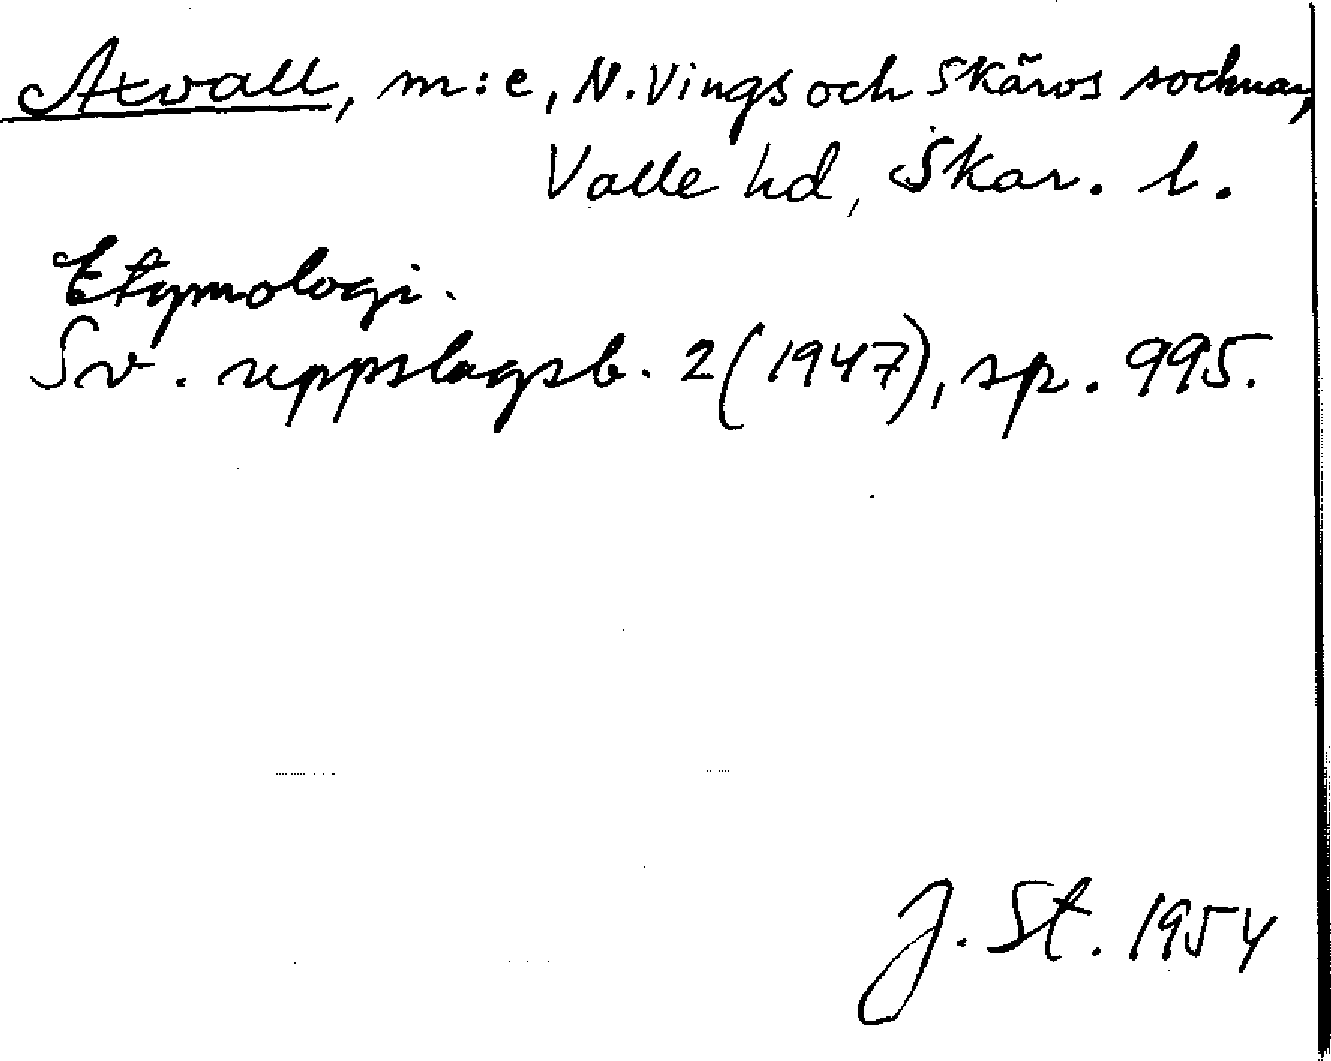 Axvall, m:e, N. Vings och Skärvs socknar,
Valle hd, Skar. l.
Etymologi.
Sv. uppslagsb. 2 (1947), sp. 995.
J. St. 1954